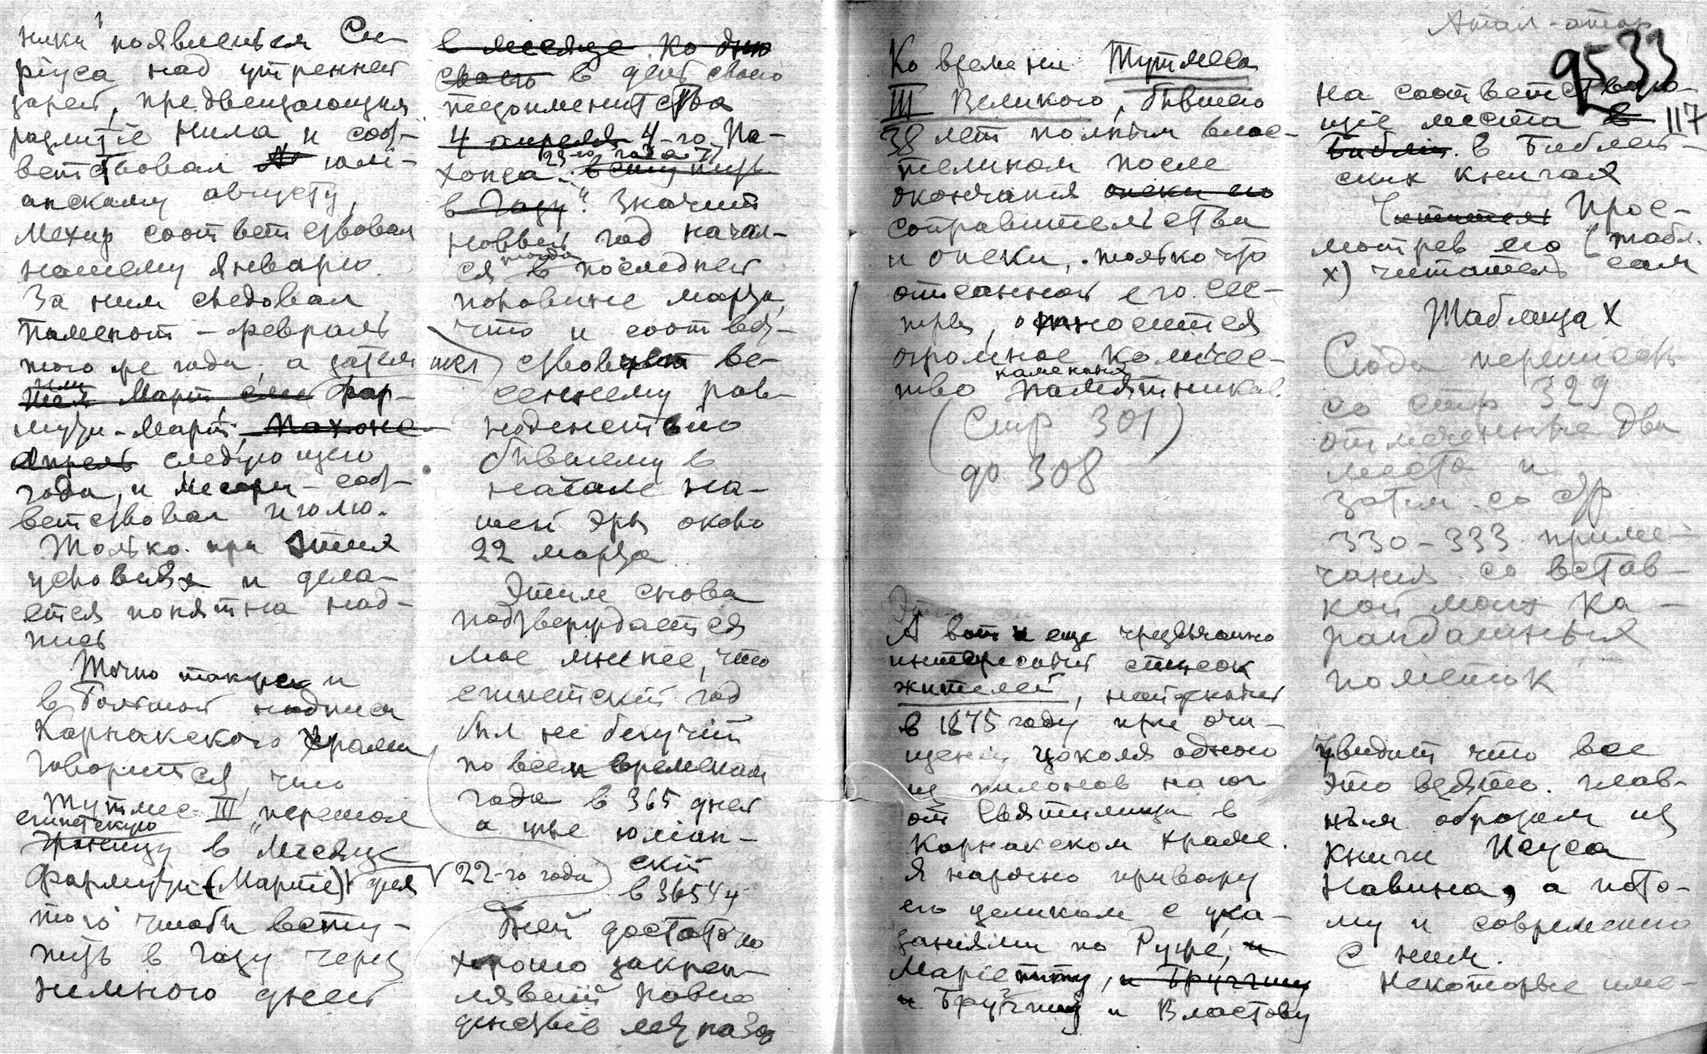 ники появленьем Си-
ріуса над утренней
зарей, предвещающия
разлитіе Нила и соот-
ветствовал юлі-
анскому августу,
Мехир соответствовал
нашему январю.
За ним следовал
Паменот - февраль
того же года, а затем
или Март или Фар-
мути - Март, Пахоне
Апрель следующего
года, и Месори - соот-
ветствовал июлю.
Только при этих
условіях и дела-
ется понятна над-
пись
Точно также и
в большой надписи
Карнакского храма
говорится, что
Тутмес III „перешол
египетскую
границу в месяце
Фармути (Марте) для
того чтобы всту-
пить в Газу через
немного дней
в месяце Ко дню
своего в день своего
тезоименитства
4 апреля 4-го Па-
23-го года
хонса. вступить
в Газу". Значит
новый год начал-
ся тогда в последней
половине марта,
что и соответ-
ствовует ве-
сеннему рав-
ноденствію
бывшему в
начале на-
шей эры около
22 марта
Этим снова
подтверждается
мое мненіе, что
египетскій год
был не бегучій
по всем временам
года в 365 дней
а уже юліан-
скій
22-го года)
в 365 1/4
дней достаточно
хорошо закреп-
лявшій равно
денствіе
Ко времени Тутмеса
III Великого, бывшего
38 лет полным влас-
телином после
окончания опеки его
соправительства
и опеки, только что
описанной его сес-
тры, относится
огромное количес-
каменных
тво памятников
(Стр 301)
до 308
А вот и еще чрезвычайно
интересный список
жителей, найденный
в 1875 году при очи-
щеніи цоколя одного
из пилонов на юг
от Святилища в
Карнакском храме.
Я нарочно привожу
его целиком с ука-
заніями по Руже, и
Маріетту, и Бругшу
и Бругшу и Властову
9533
117
на соответствую-
щие места в
Библии. в Библей-
ских книгах
Читатель Прос-
мотрев его (табл.
X) читатель сам
Таблица X
Сюда переписать
со стр 329
отмеченные два
места и
затем со стр
330-333 приме-
чания со встав-
кой моих ка-
рандашных
пометок
увидит что все
это взято глав-
ным образом из
книги Исуса
Навина, а пото-
му и современно
с ним.
Некоторые име-